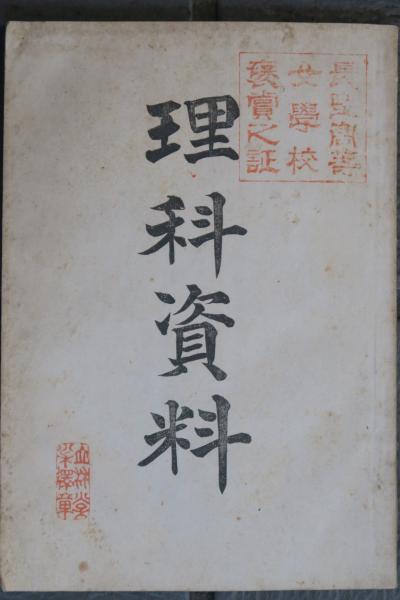 理科資料
長生高等
女學校
褒賞之証